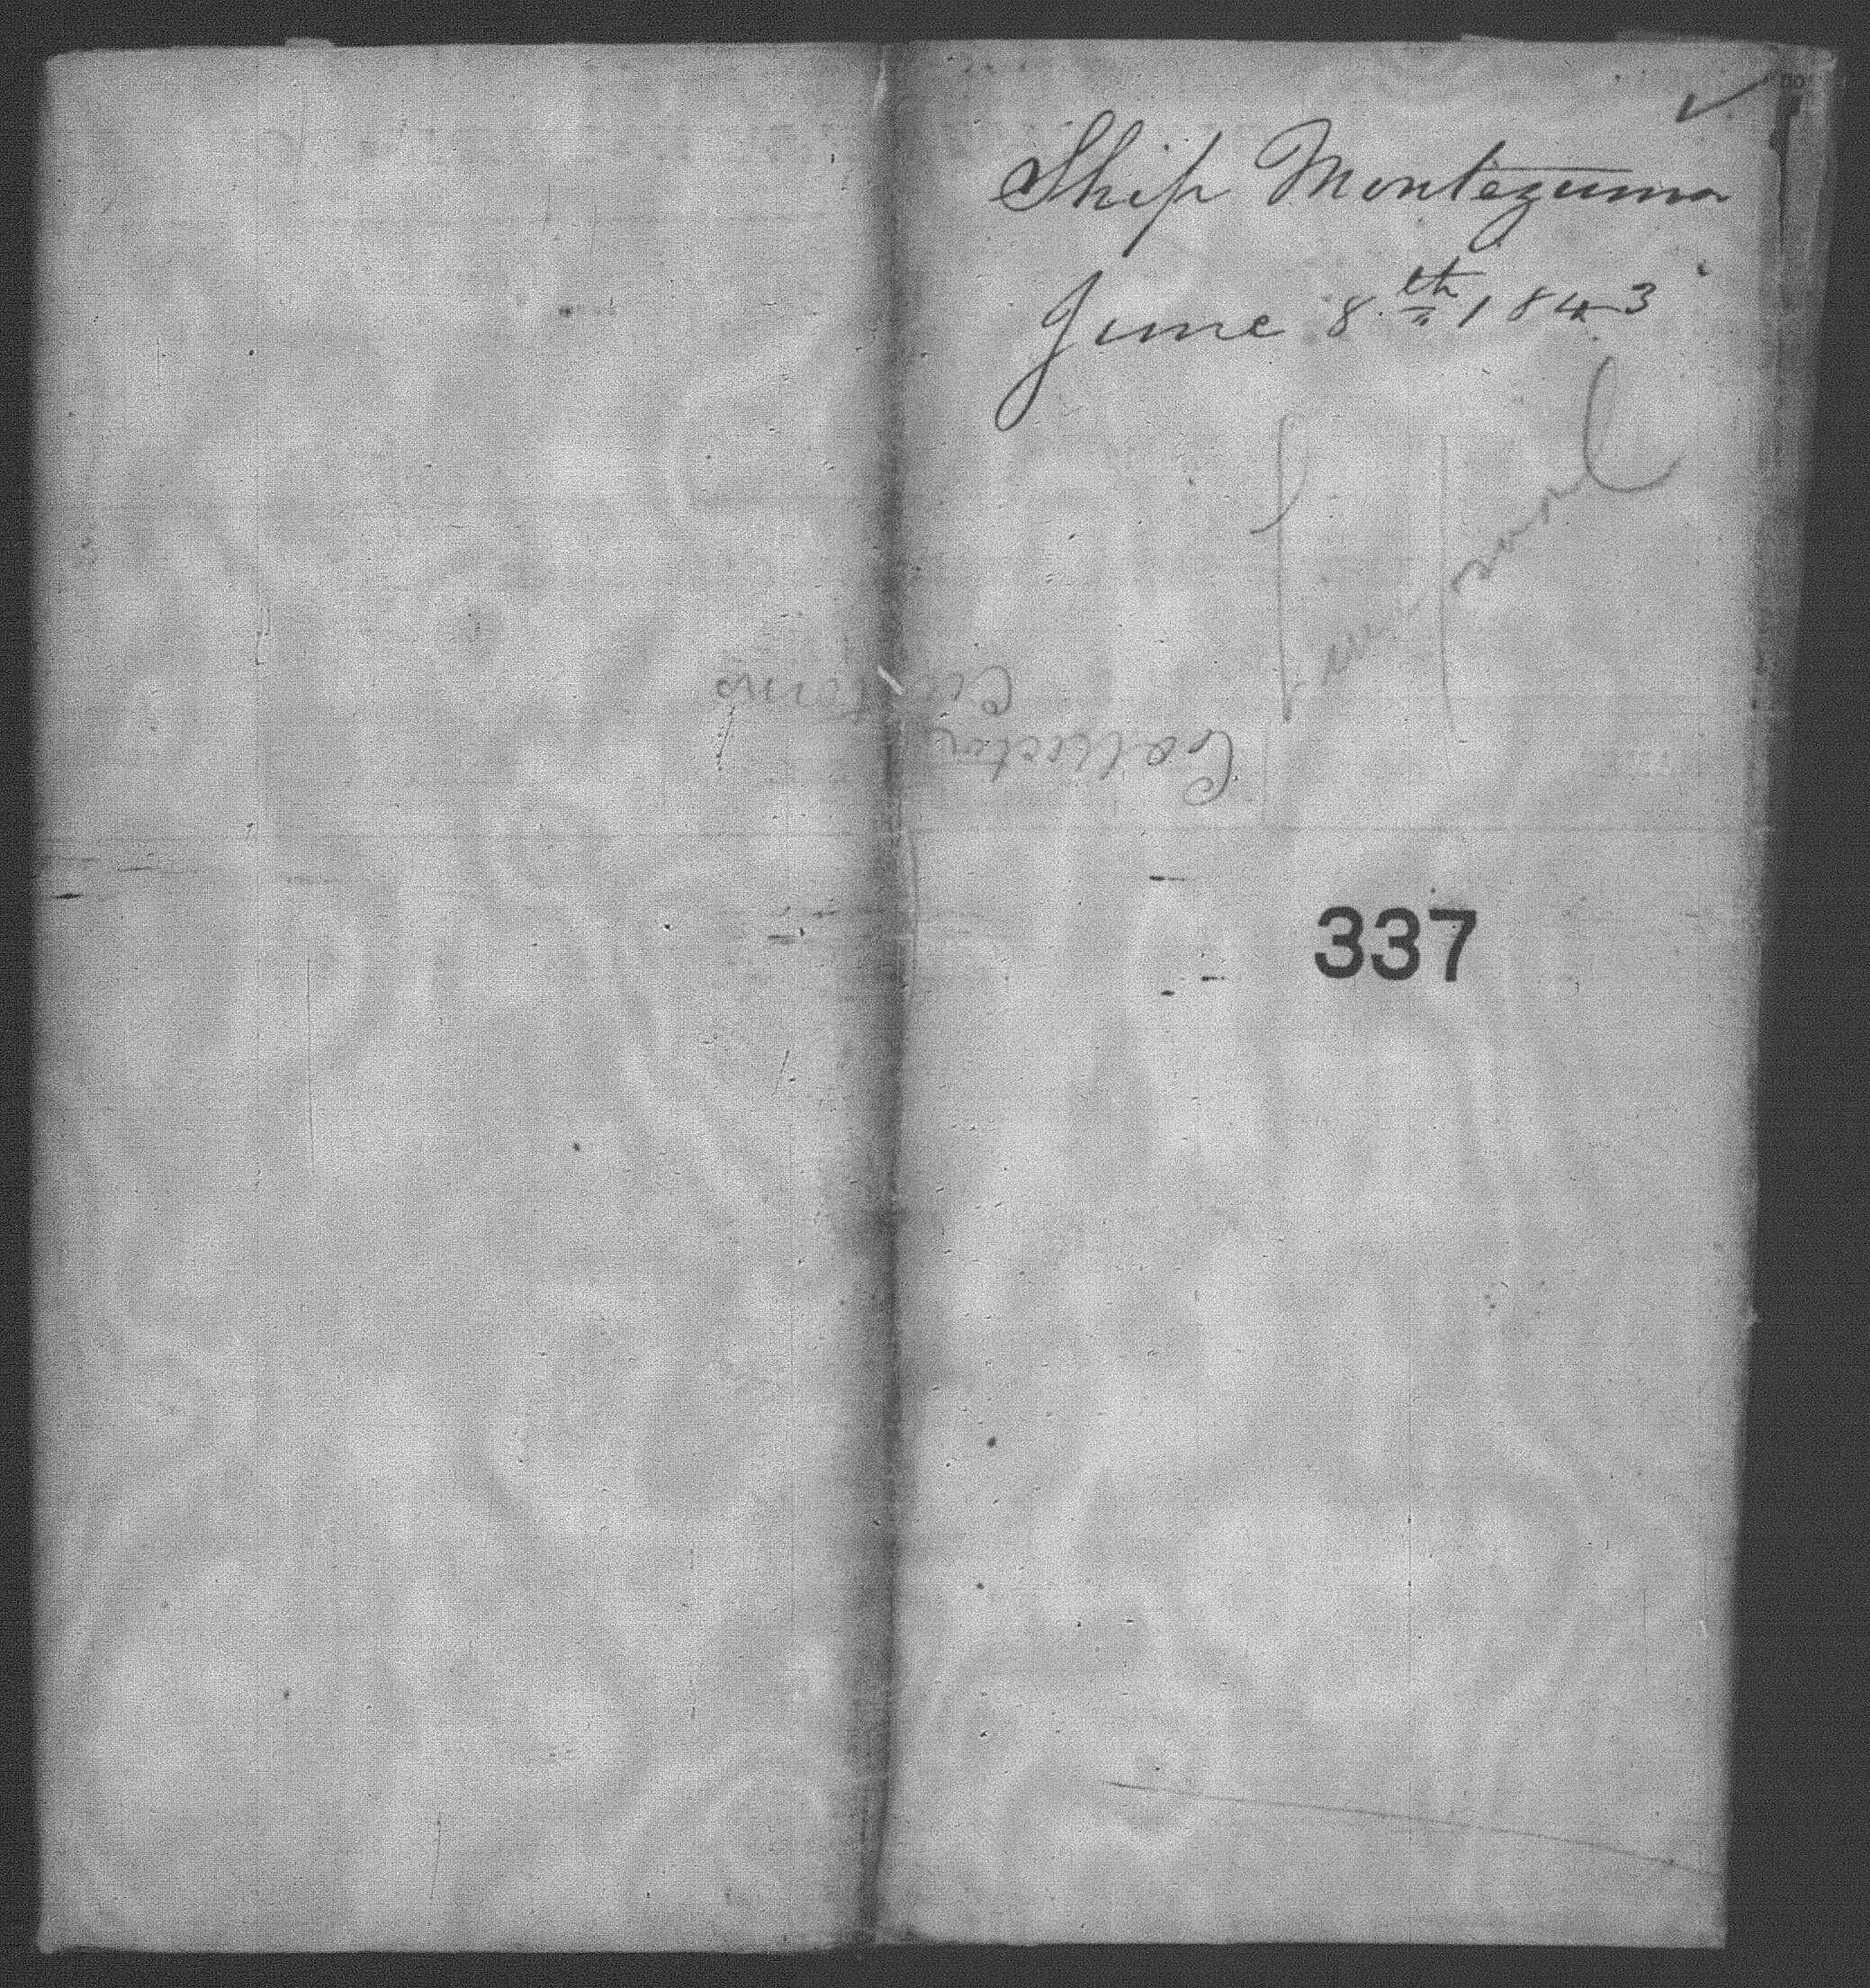 Ship Montezuma
June 8.th 1843
Liverpool
Collector
Customs
337